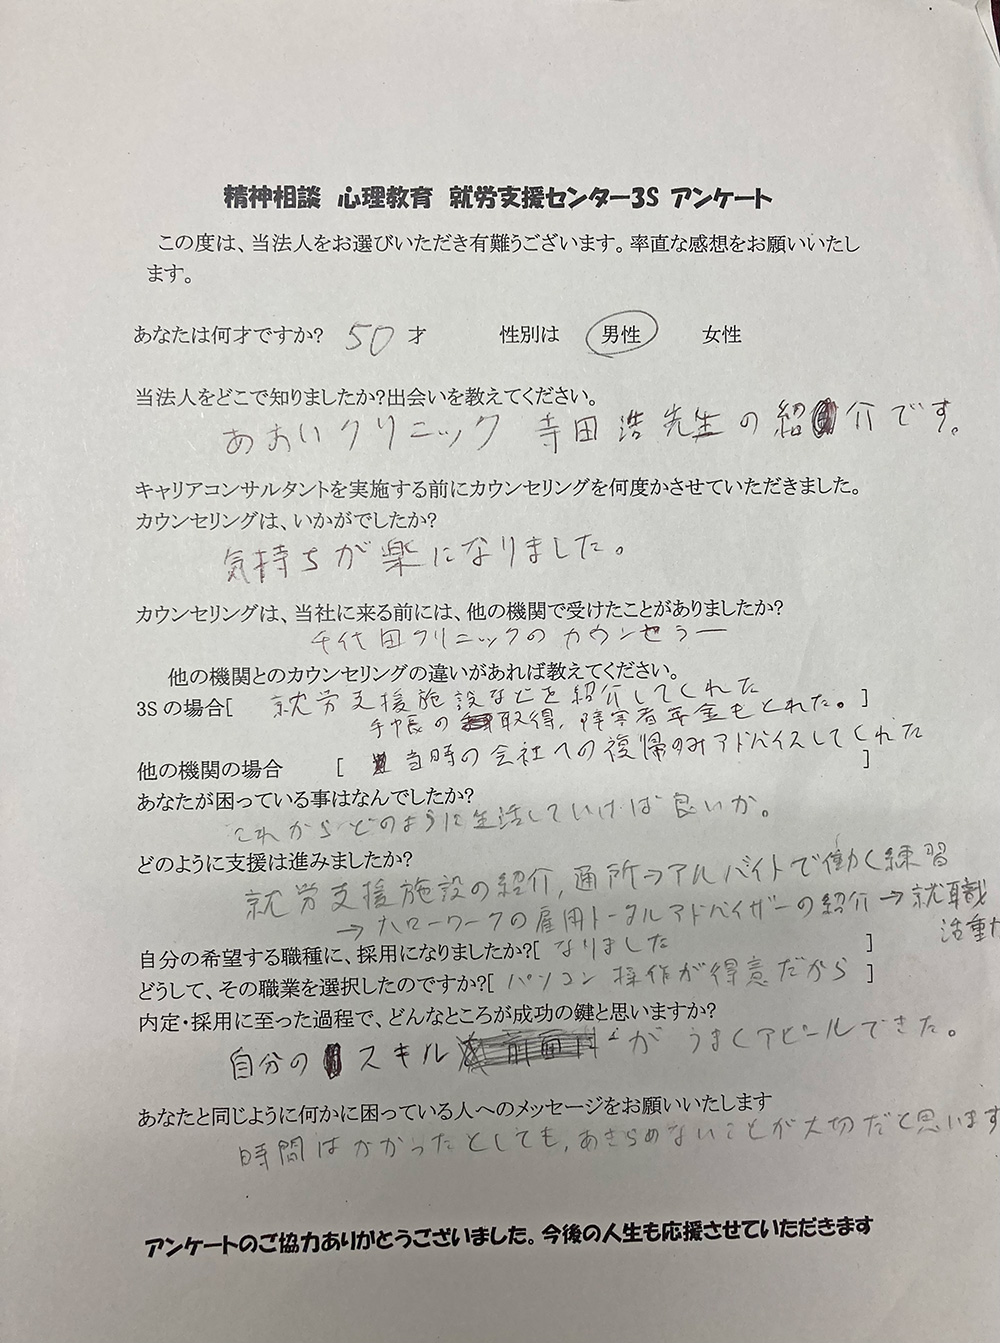 精神相談 心理教育 就労支援センター3S アンケート
この度は、当法人をお選びいただき有難うございます。率直な感想をお願いいたし
ます。
あなたは何才ですか? 50 才 性別は 男性 女性
当法人をどこで知りましたか?出会いを教えてください。
あおいクリニック 寺田浩先生の紹介です。
キャリアコンサルタントを実施する前にカウンセリングを何度かさせていただきました。
カウンセリングは、いかがでしたか?
気持ちが楽になりました。
カウンセリングは、当社に来る前には、他の機関で受けたことがありましたか?
千代田クリニックのカウンセラー
他の機関とのカウンセリングの違いがあれば教えてください。
3Sの場合[ 就労支援施設などを紹介してくれた ]
手帳の取得,障害者年金もとれた。
他の機関の場合 [ 当時の会社への復帰のみアドバイスしてくれた ]
あなたが困っている事はなんでしたか?
これからどのように生活していけば良いか。
どのように支援は進みましたか?
就労支援施設の紹介,通所→アルバイトで働く練習
→ハローワークの雇用トータルアドバイザーの紹介→就職
活動
自分の希望する職種に、採用になりましたか?[ なりました ]
どうして、その職業を選択したのですか?[ パソコン操作が得意だから ]
内定・採用に至った過程で、どんなところが成功の鍵と思いますか?
自分のスキルがうまくアピールできた。
あなたと同じように何かに困っている人へのメッセージをお願いいたします
時間はかかったとしても,あきらめないことが大切だと思います
アンケートのご協力ありがとうございました。今後の人生も応援させていただきます